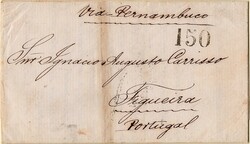 Via Pernambuco
150
Snr Ignacio Augusto Carrisso
Figueira
Portugal